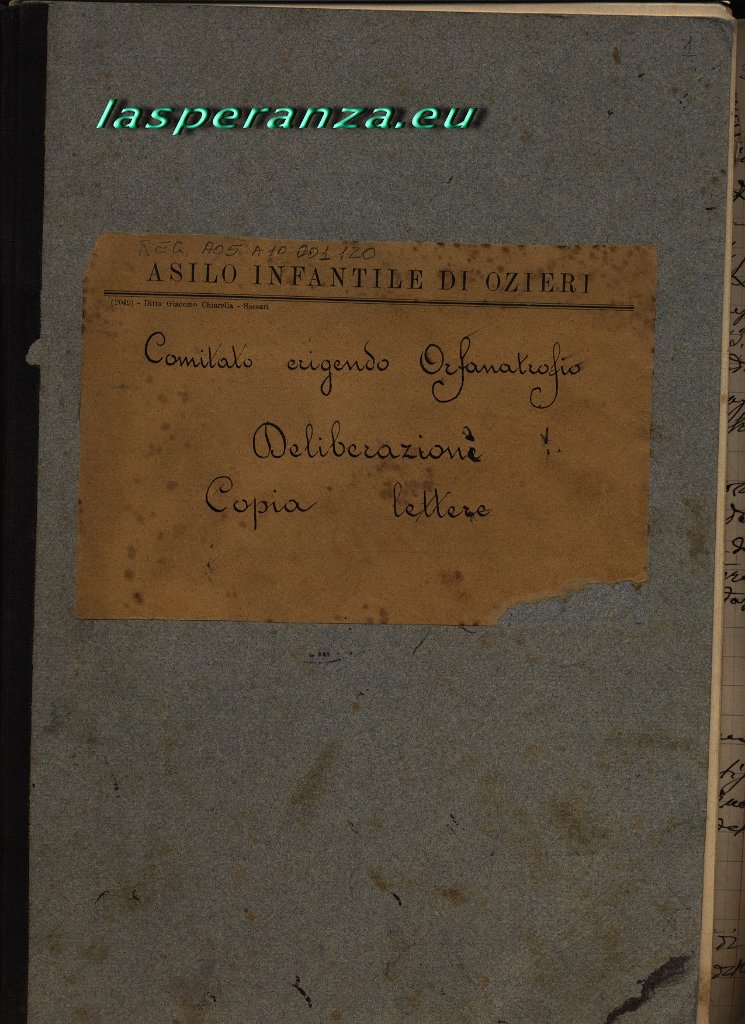 1
lasperanza.eu
REG. A05 A10 001 120
ASILO INFANTILE DI OZIERI
(2045) - Ditta Giacomo Chiarella - Sassari
Comitato erigendo Orfanatrofio
Deliberazioni
Copia lettere